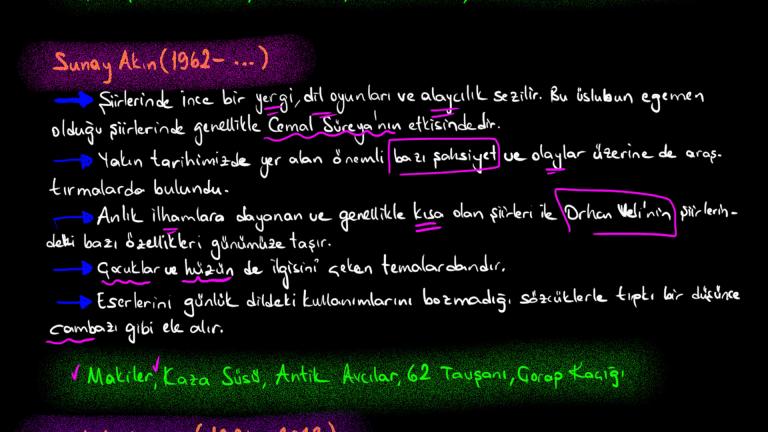 Sunay Akın (1962- ...)
Şiirlerinde ince bir yergi, dil oyunları ve alaycılık sezilir. Bu üslubun egemen
olduğu şiirlerinde genellikle Cemal Süreya'nın etkisindedir.
Yakın tarihimizde yer alan önemli bazı şahsiyet ve olaylar üzerine de araş-
tırmalarda bulundu.
Anlık ilhamlara dayanan ve genellikle kısa olan şiirleri ile Orhan Veli'nin şiirlerin-
deki bazı özellikleri günümüze taşır.
Çocuklar ve hüzün de ilgisini çeken temalardandır.
Eserlerini günlük dildeki kullanımlarını bozmadığı sözcüklerle tıpkı bir düşünce
cambazı gibi ele alır.
Makiler, Kaza Süsü, Antik Avcılar, 62 Tavşanı, Çorap Kaçığı